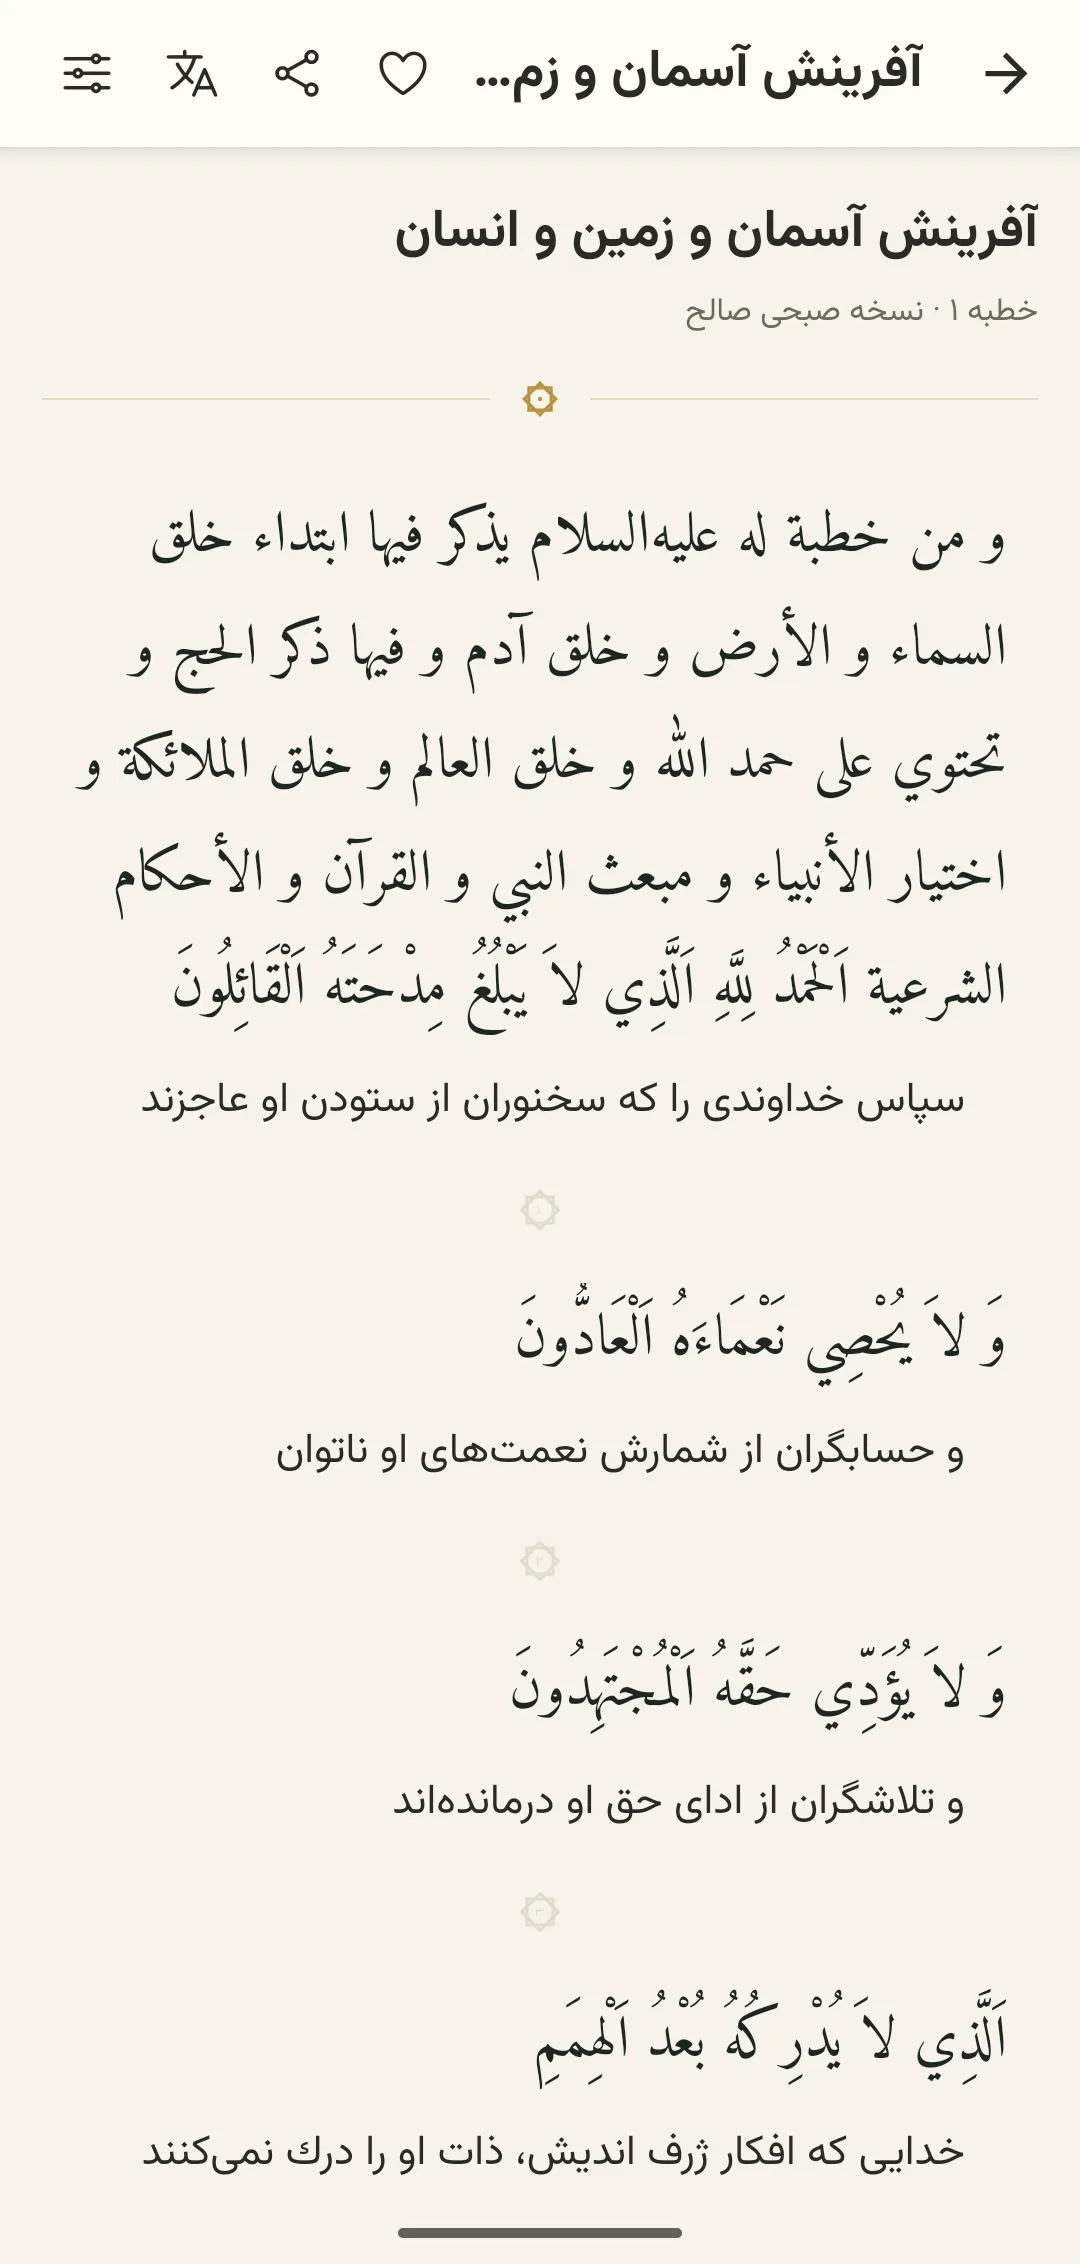 آفرینش آسمان و زم...
آفرینش آسمان و زمین و انسان
خطبه ۱ · نسخه صبحی صالح
و من خطبة له عليه‌السلام يذكر فيها ابتداء خلق
السماء و الأرض و خلق آدم و فيها ذكر الحج و
تحتوي على حمد الله و خلق العالم و خلق الملائكة و
اختيار الأنبياء و مبعث النبي و القرآن و الأحكام
الشرعية اَلْحَمْدُ لِلَّهِ اَلَّذِي لاَ يَبْلُغُ مِدْحَتَهُ اَلْقَائِلُونَ
سپاس خداوندی را که سخنوران از ستودن او عاجزند
۱
وَ لاَ يُحْصِي نَعْمَاءَهُ اَلْعَادُّونَ
و حسابگران از شمارش نعمت‌های او ناتوان
۲
وَ لاَ يُؤَدِّي حَقَّهُ اَلْمُجْتَهِدُونَ
و تلاشگران از ادای حق او درمانده‌اند
۳
اَلَّذِي لاَ يُدْرِكُهُ بُعْدُ اَلْهِمَمِ
خدایی که افکار ژرف اندیش، ذات او را درك نمی‌کنند